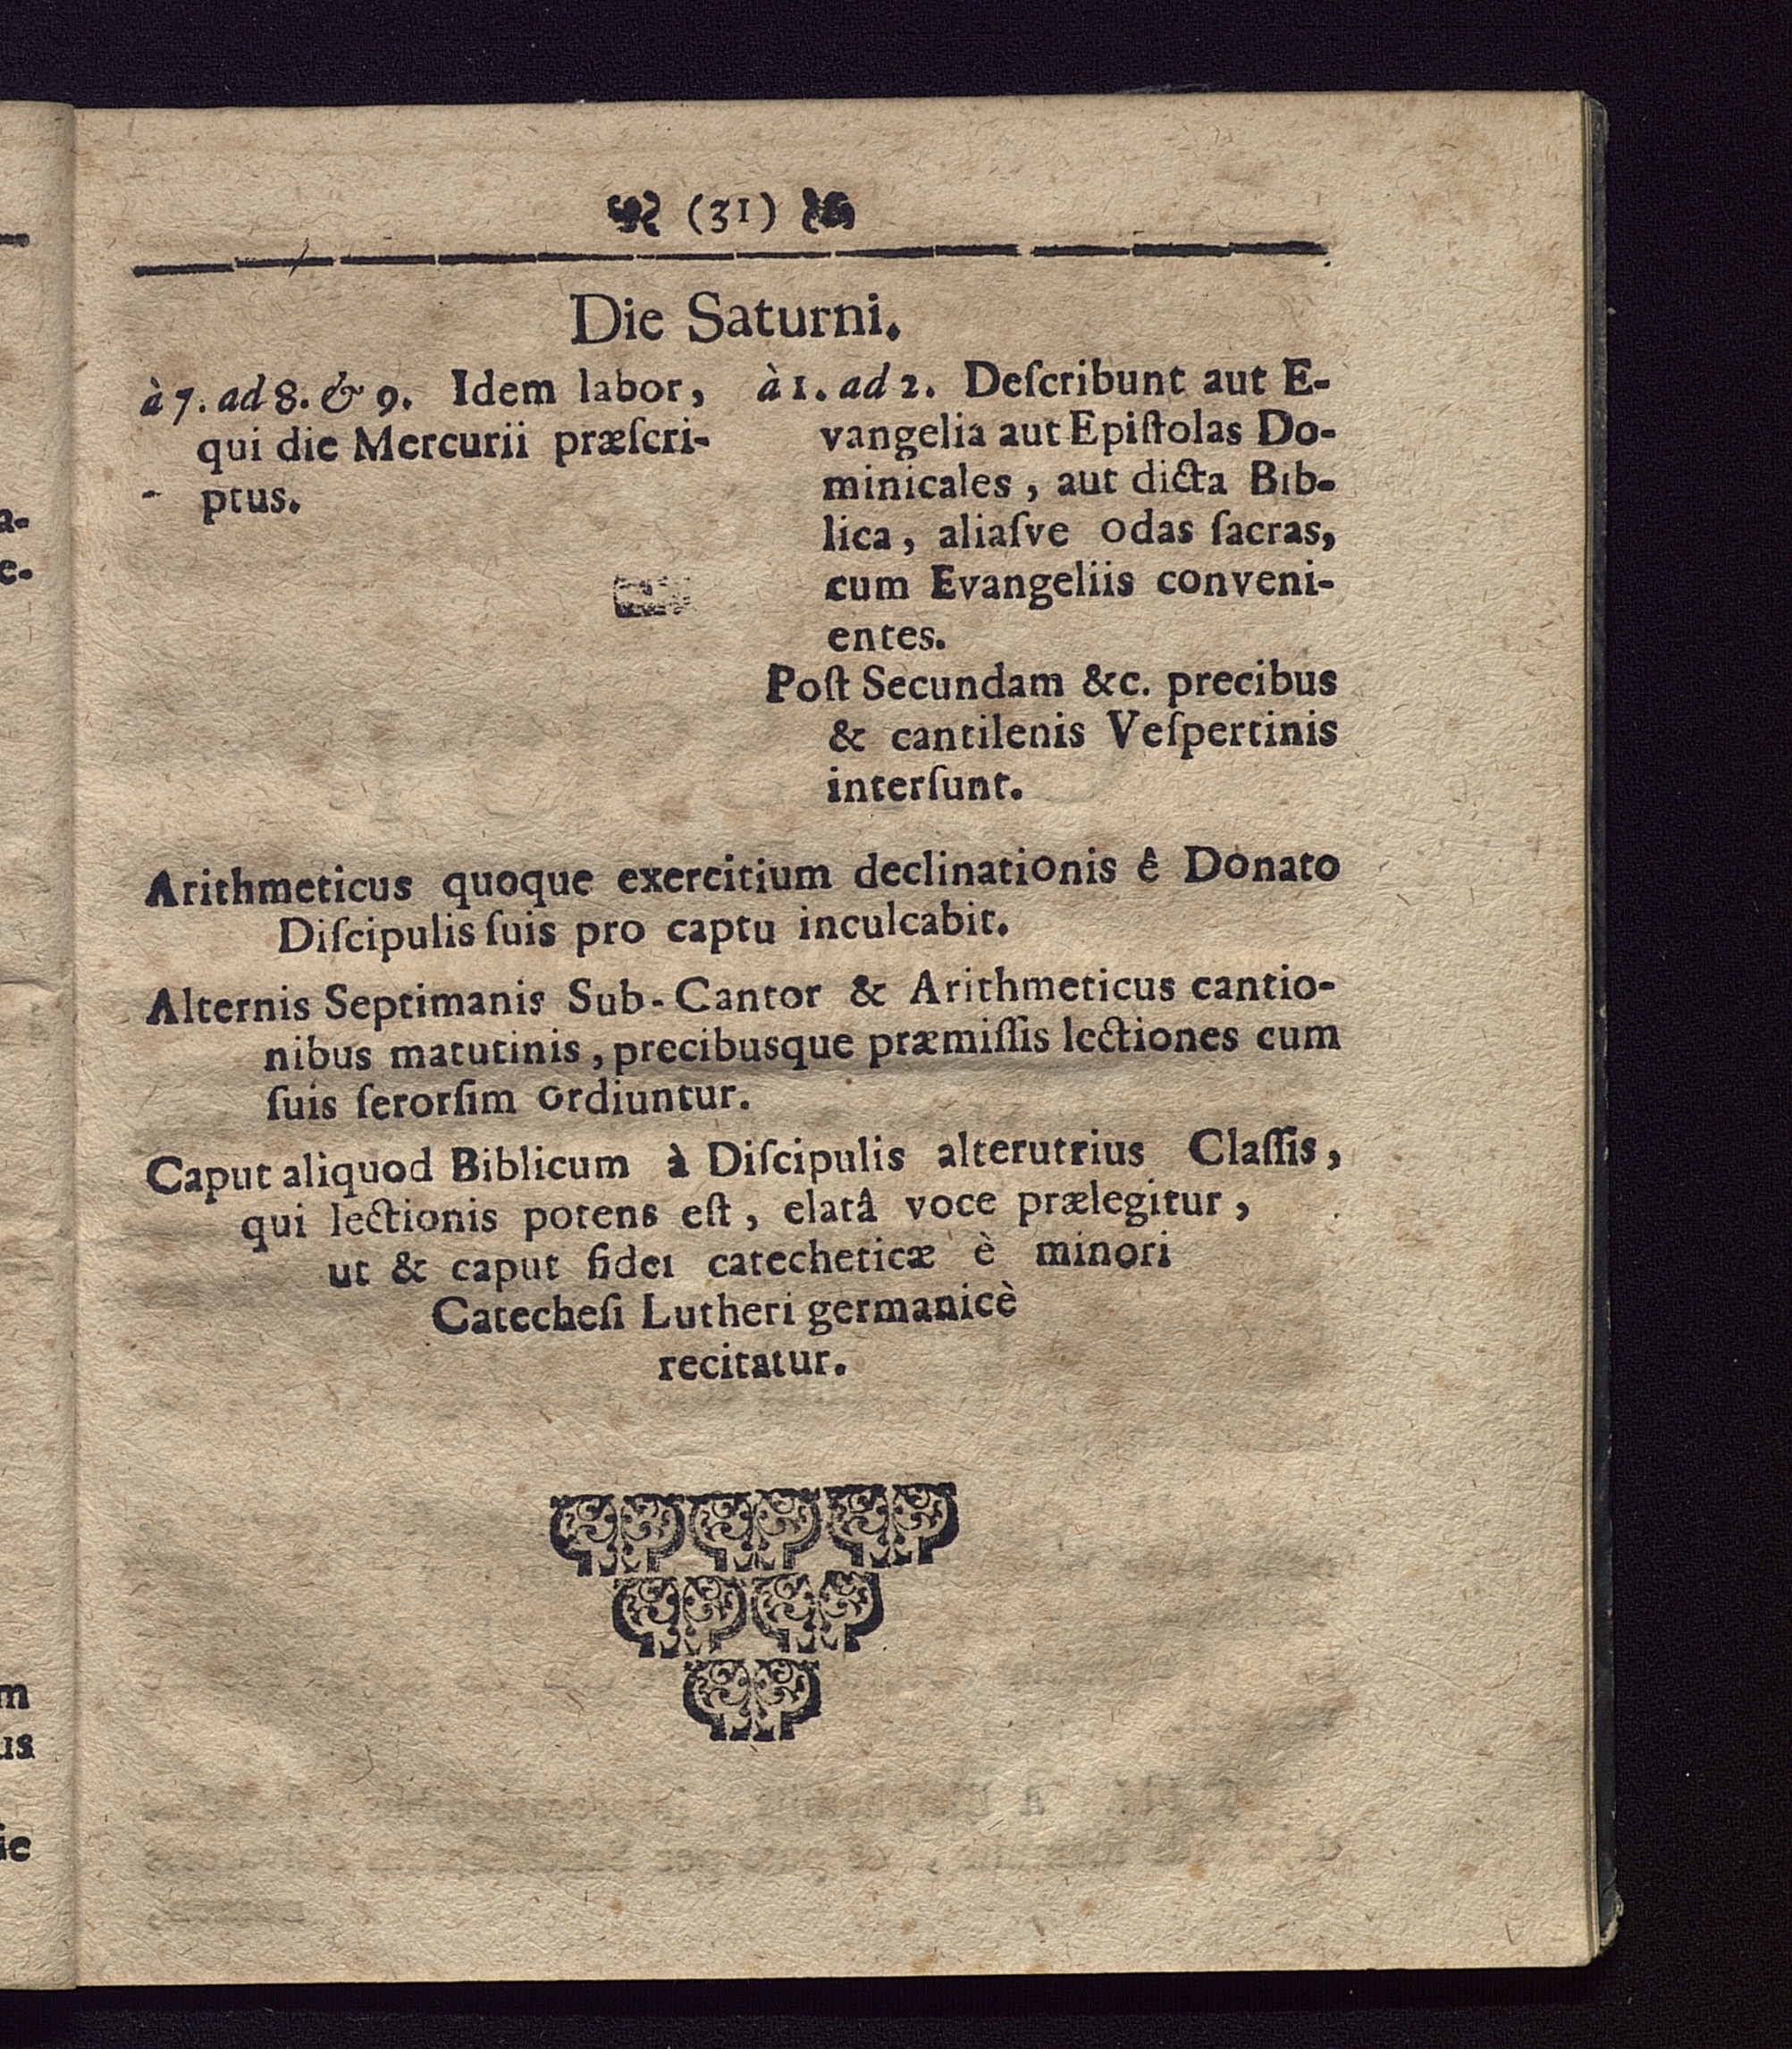 (31)
Die Saturni.
à 7. ad 8. & 9. Idem labor,
qui die Mercurii præſcri-
ptus.
à 1. ad 2. Deſcribunt aut E-
vangelia aut Epiſtolas Do-
minicales, aut dicta Bib-
lica, aliaſve odas ſacras,
cum Evangeliis conveni-
entes.
Poſt Secundam &c. precibus
& cantilenis Veſpertinis
interſunt.
Arithmeticus quoque exercitium declinationis ê Donato
Diſcipulis ſuis pro captu inculcabit.
Alternis Septimanis Sub-Cantor & Arithmeticus cantio-
nibus matutinis, precibusque præmiſſis lectiones cum
ſuis ſerorſim ordiuntur.
Caput aliquod Biblicum à Diſcipulis alterutrius Claſſis,
qui lectionis potens eſt, elatâ voce prælegitur,
ut & caput fidei catecheticæ è minori
Catecheſi Lutheri germanicè
recitatur.